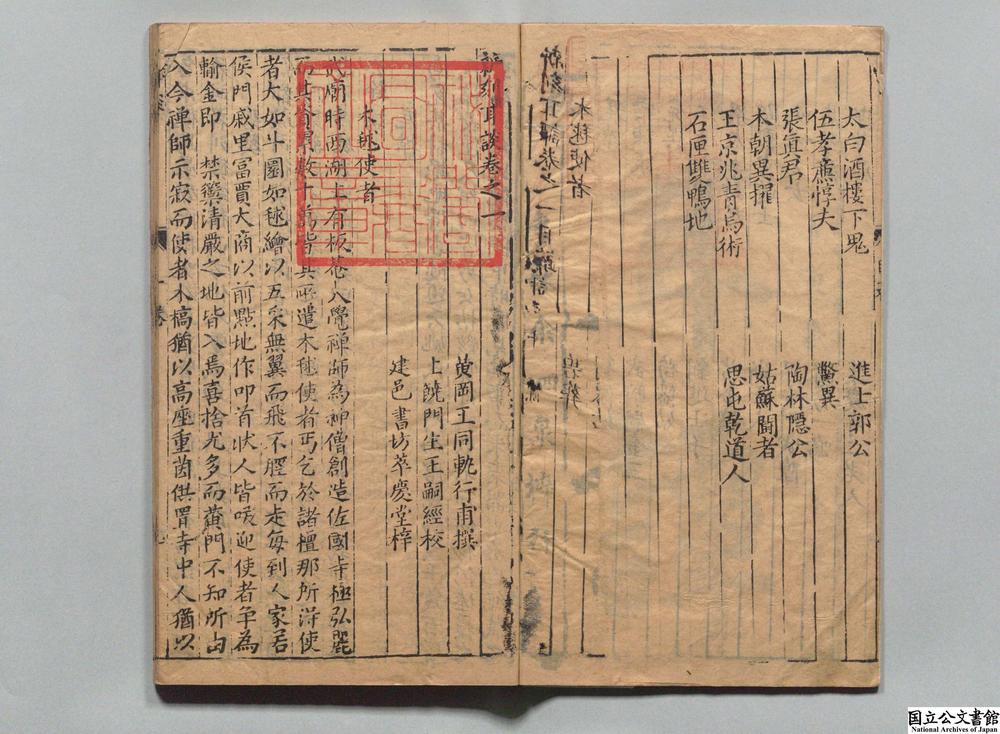 太白酒樓下鬼
進士郭公
伍孝廉惇夫
鱉異
張真君
陶林隱公
本朝異擢
姑蘇鬪者
王京兆青烏術
思屯乾道人
石匣雙鴨地
新刻耳談卷之一
黄岡王同軌行甫撰
上饒門生王嗣經校
建邑書坊萃慶堂梓
木毬使者
武廟時西湖上有板菴入覺禪師為神僧創造佐國寺極弘麗
而其資費數十萬皆其所遣木毬使者丐乞於諸檀那所得使
者大如斗圓如毬繪以五采無翼而飛不脛而走每到人家若
侯門戚里冨賈大商以前點地作叩首狀人皆喧迎使者争為
輸金即禁籞清嚴之地皆入焉喜捨尤多而黄門不知所由
入今禅師示寂而使者木槁猶以高座重茵供置寺中人猶以
国立公文書館
National Archives of Japan